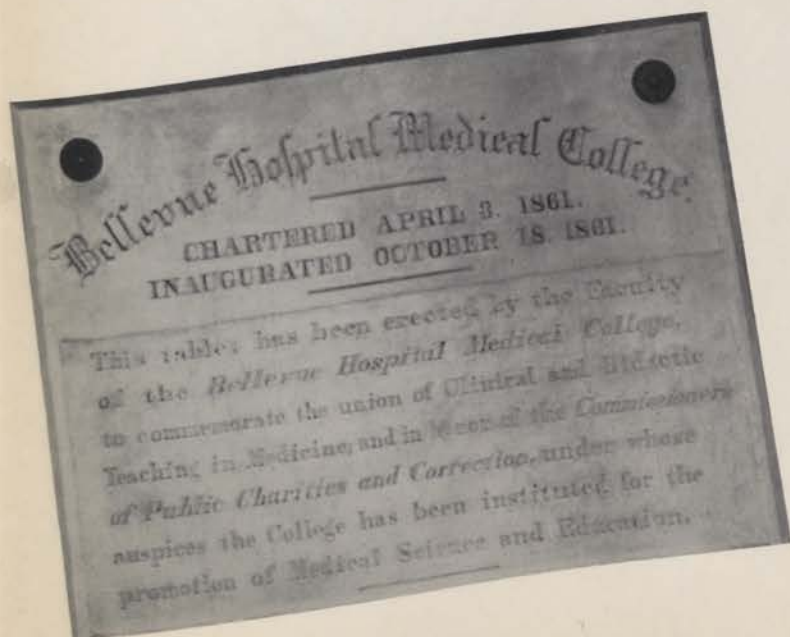 Bellevue Hospital Medical College.
CHARTERED APRIL 3. 1861.
INAUGURATED OCTOBER 18. 1861.
This tablet has been erected by the Faculty
of the Bellevue Hospital Medical College,
to commemorate the union of Clinical and Didactic
Teaching in Medicine, and in honor of the Commissioners
of Public Charities and Correction, under whose
auspices the College has been instituted for the
promotion of Medical Science and Education.